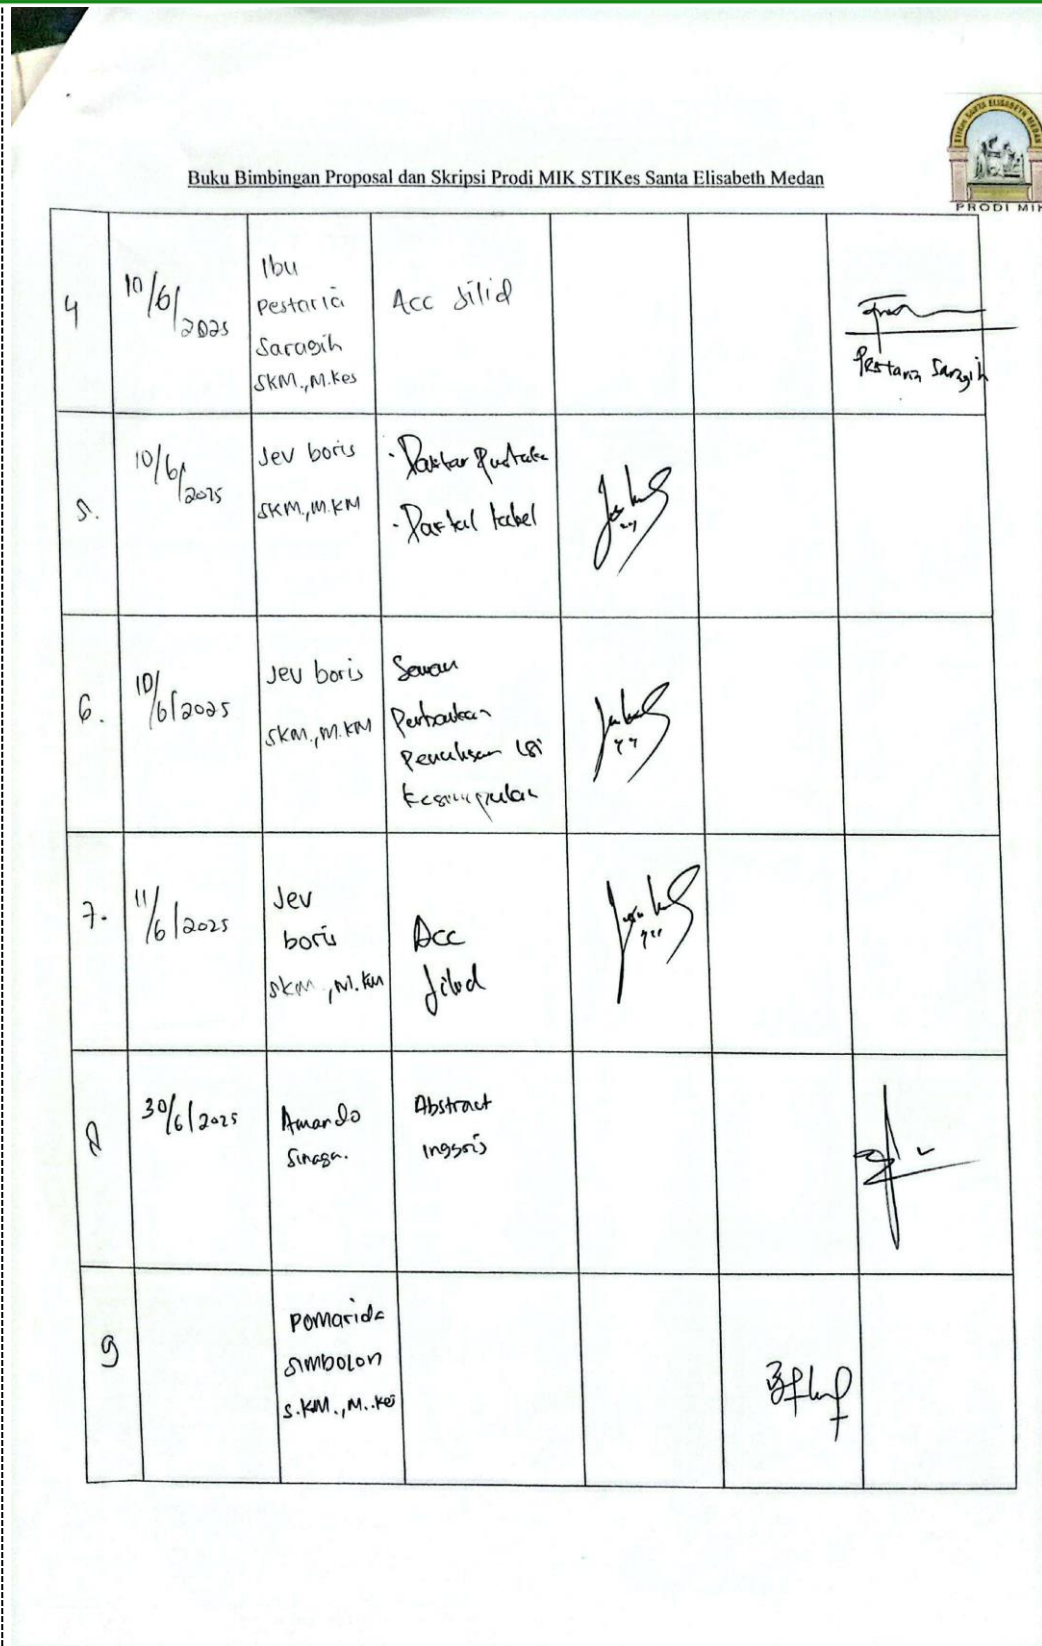 STIKes SANTA ELISABETH MEDAN
PRODI MIK
Buku Bimbingan Proposal dan Skripsi Prodi MIK STIKes Santa Elisabeth Medan
4
10/6/2025
Ibu
Pestaria
Saragih
SKM., M.Kes
Acc Jilid
Pestaria Saragih
5.
10/6/2025
Jev boris
SKM., M.KM
· Daftar Pustaka
· Daftar tabel
6.
10/6/2025
Jev boris
SKM., M.KM
Perbaikan
Penulisan isi
Kesimpulan
7.
11/6/2025
Jev
boris
SKM., M.KM
Acc
Jilid
8
30/6/2025
Amando
Sinaga.
Abstract
inggris
9
Pomarida
Simbolon
S.KM., M.Kes